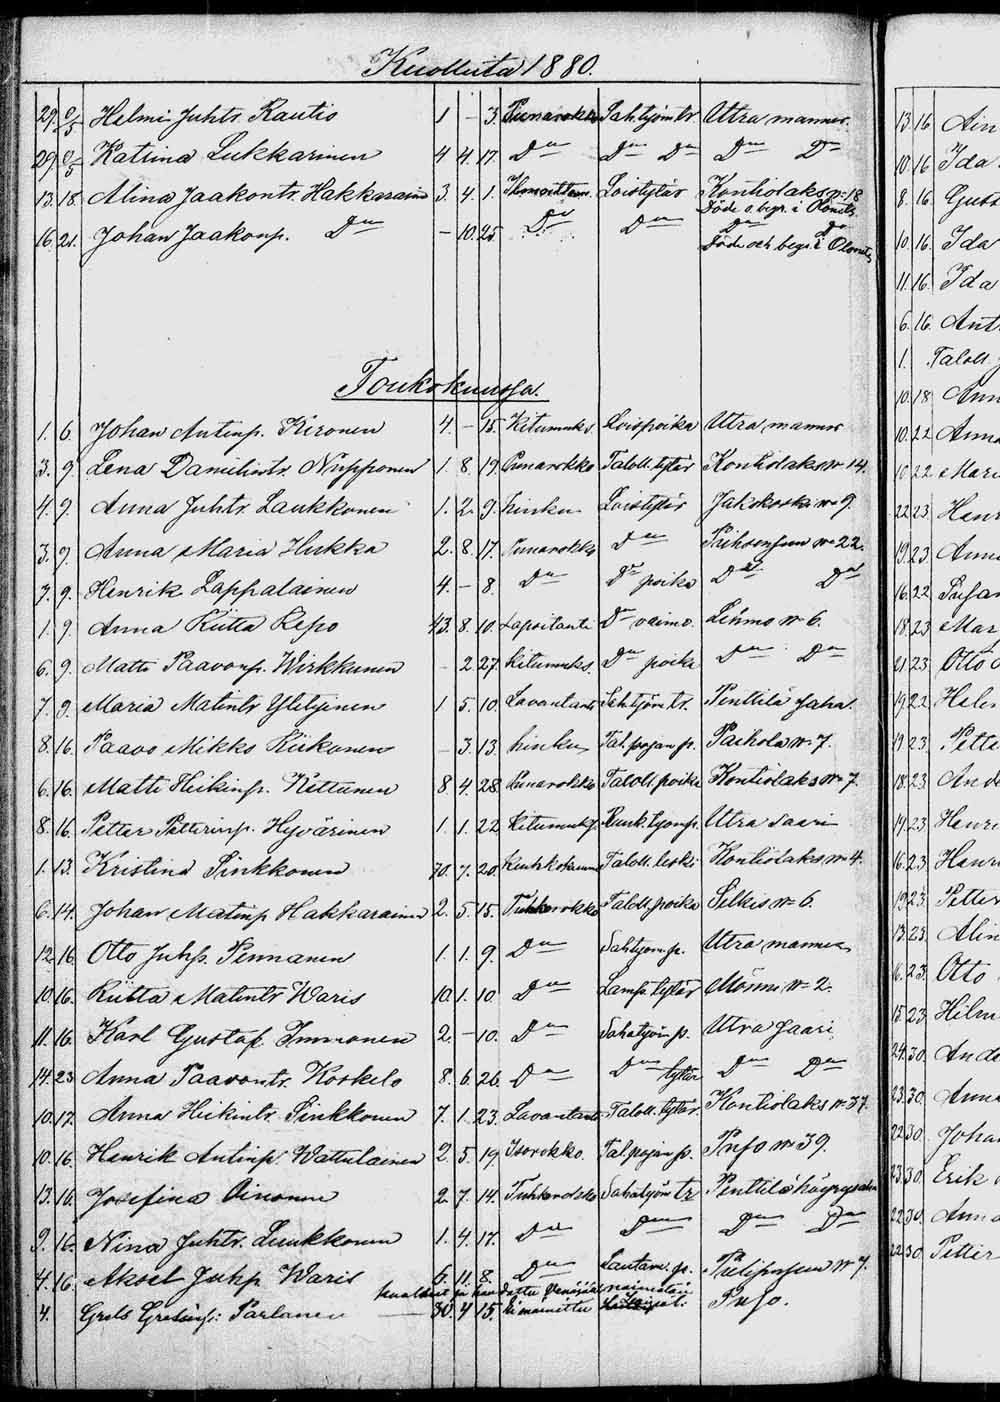 Kuolleita 1880.
29. 2/5 Helmi Juhtr. Rautio 1 - 3. Punarokko Sah.työm. tr Utra manner.
29. 2/5 Katrina Lukkarinen 4 4. 17. Do Do Do Do Do
13. 18. Alina Jaakontr. Hakkarainen 3. 4. 1. Loistytär Kontiolaks No 18
Döde o. begr. i Olonets
16. 21. Johan Jaakonp. Do - 10. 25 Do Do Do Do
Döde och begr. i Olonets
Toukokuussa.
1. 6. Johan Antinp. Kironen 4. - 15. Kitumuks. Loispoika Utra manner
3. 9. Lena Danielintr. Nupponen 1. 8. 19. Punarokko Taloll. tytär Kontiolaks No 14.
4. 9. Anna Juhtr. Laukkonen 1. 2. 9. hinku Loistytär Jakokoski No 9.
3. 9. Anna Maria Hukka 2. 8. 17. Punarokko Do No 22.
7. 9. Henrik Lappalainen 4. - 8. Do Do poika Do Do
1. 9. Anna Riitta Repo 43. 8. 10. Lapsitauti Do vaimo. Lehmo No 6.
6. 9. Matti Paavonp. Wirkkunen - 2. 27. Kitumuks. Do poika Do Do
7. 9. Maria Matintr Yletyinen 1 5. 10. Lavantauti Sah.työm. tr. Penttilä Saha.
8. 16. Paavo Mikko Kiikonen - 3. 13. hinku Tal. pojan p. Paihola No 7.
6. 16. Matti Heikinp. Kettunen 8. 4. 28. Punarokko Taloll. poika Kontiolaks No 7.
8. 16. Petter Petterinp. Hyvärinen 1. 1. 22. Kitumuks. Ruuk. työm. p. Utra Saari
1. 13. Kristina Sinkkonen 70. 7. 20. Keuhkokuume Taloll. leski Kontiolaks No 4.
6. 14. Johan Matinp Hakkarainen 2. 5. 15. Tuhkarokko Taloll. poika Selkie No 6.
12. 16. Otto Juhp. Pennanen 1. 1. 9. Do Sah.työm. p. Utra manner
10. 16. Riitta Matintr Waris 10. 1. 10 Do Lamp. tytär Mönni No 2.
11. 16. Karl Gustaf Immonen 2. - 10. Do Sahatyöm p. Utra Saari
14. 23 Anna Paavontr. Koskelo 8. 6. 26. Do Do tytär Do Do
10. 17. Anna Heikintr. Sinkkonen 7. 1. 23. Lavantauti Taloll. tytär. Kontiolaks No 37.
10. 16. Henrik Antinp. Wattulainen 2. 5. 19. Isorokko. Tal. pojan p. Puso No 39.
13. 16. Josefina Oinonen 2. 7. 14. Tuhkarokko Sahatyöm tr Penttilä höyrysaha
9. 16. Nina Juhtr. Luukkonen 1. 4. 17. Do Do Do Do
4. 16. Aksel Juhp. Waris 6. 11. 8. Do Lautam. p. No 7.
4. Grels Grelsinp: Parlanen 30. 4 15. Puso.
13. 16 Ain
10. 16 Ida
8. 16. Gust
10. 16. Ida
11. 16. Ida
6. 16. Ant
1. Taloll.
10. 18 Ann
10. 22 Anna
10 22 Mari
22 23 Henr
19. 23 Anna
16. 22
18. 23 Mar
21 23 Otto
19 22 Hele
19 23 Pette
18. 23. Ande
19. 23 Henri
16. 23. Henri
19 23 Petter
13. 23. Alin
16. 23. Otto
15 23 Hilm
24. 30. Ande
23. 30. Anna
22 30. Johan
23. 30. Erik
22 30. Anna
22 30 Petter